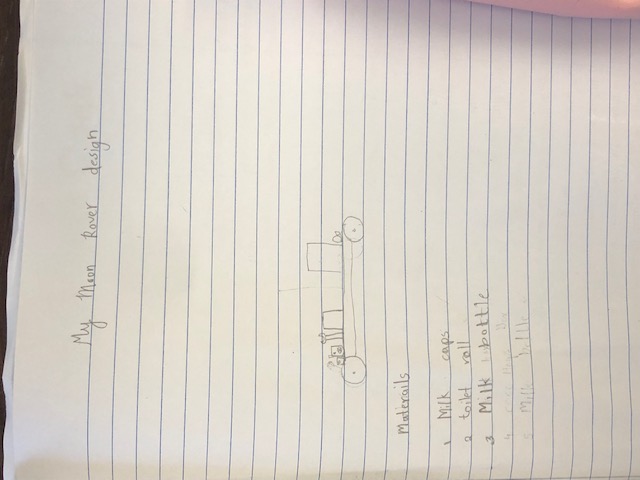 My Moon Rover design
Materails
1 Milk caps
2 toilet roll
3 Milk bottle
4
5 Milk bottle